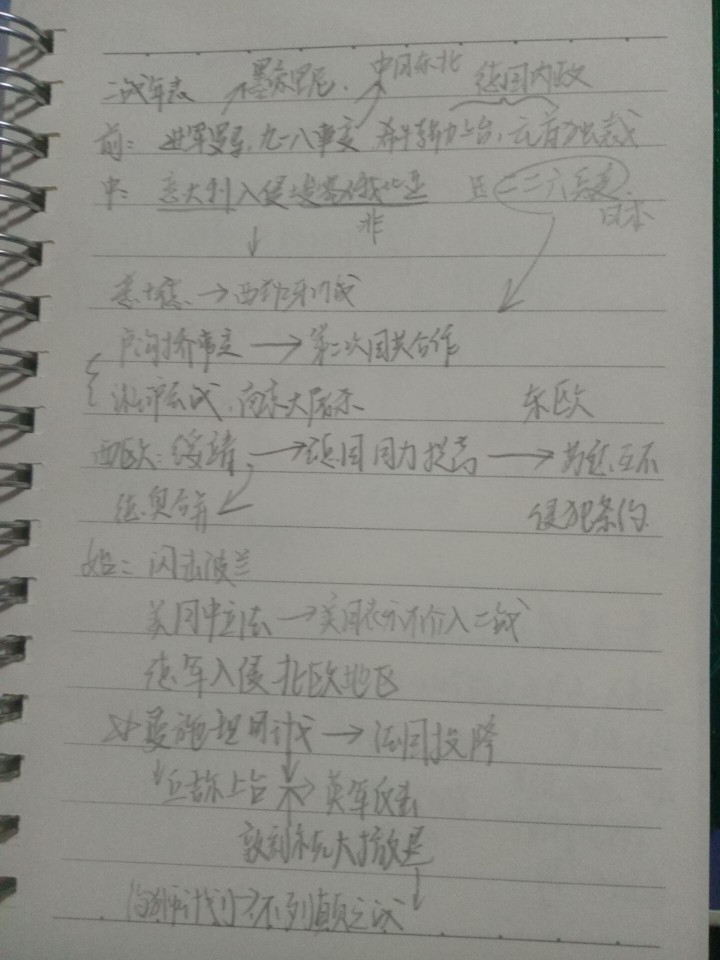 二战年表 墨索里尼. 中国东北 德国内政
前: 进军罗马, 九一八事变 希特勒上台, 元首独裁
中: 意大利入侵埃塞俄比亚 二二六兵变.
非 日本
→西班牙内战
卢沟桥事变→第二次国共合作
淞沪会战, 南京大屠杀 东欧
西欧: 绥靖, →德国国力提高→苏德互不
德奥合并 侵犯条约
始: 闪击波兰
美国中立法→美国表示不介入二战
德军入侵北欧地区
曼施坦因计划→法国投降
丘吉尔上台 英军反击
敦刻尔克大撤退
海狮计划→不列颠之战